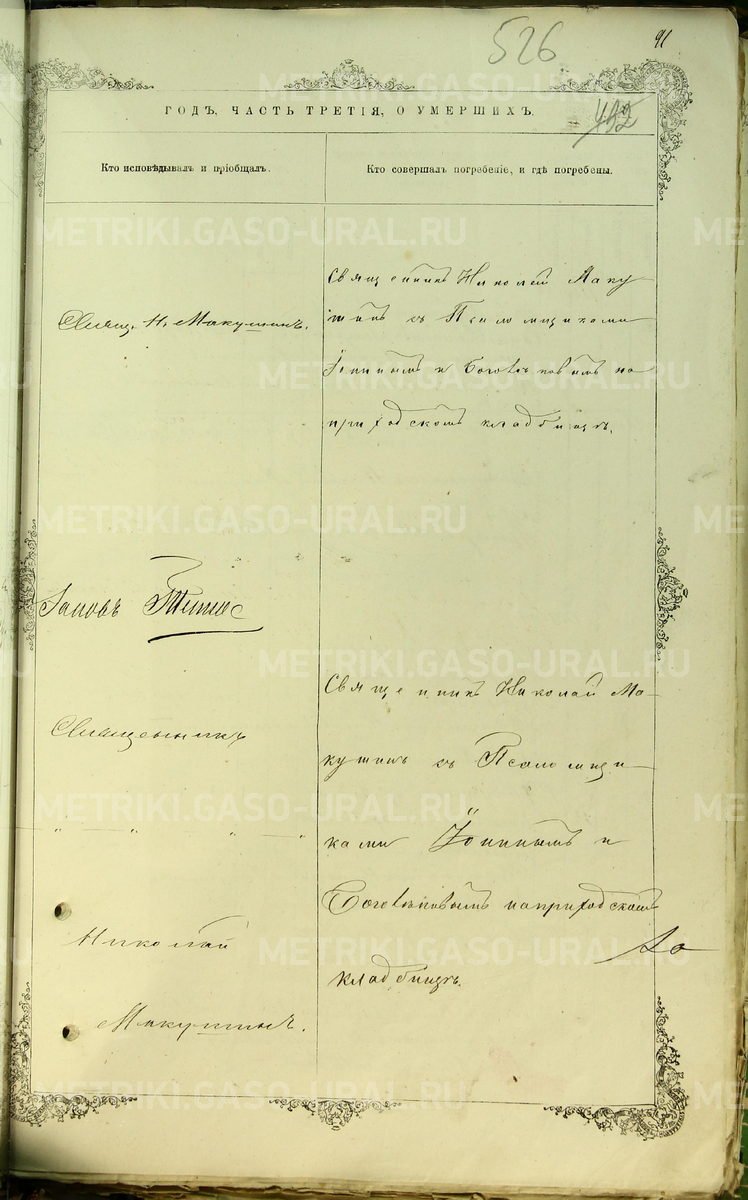 526
91
ГОДЪ, ЧАСТЬ ТРЕТІЯ, О УМЕРШИХЪ.
492
Кто исповѣдывалъ и пріобщалъ.
Кто совершалъ погребеніе, и гдѣ погребены.
Свящ. Н. Макушинъ.
Священникъ Николай Маку
шинъ съ Псаломщиками
и
на
приходскомъ кладбищѣ.
Священникъ
Николай
Макушинъ.
Священникъ Николай Ма-
кушинъ съ Псаломщи-
ками и
на приходскомъ
кладбищѣ.
METRIKI.GASO-URAL.RU